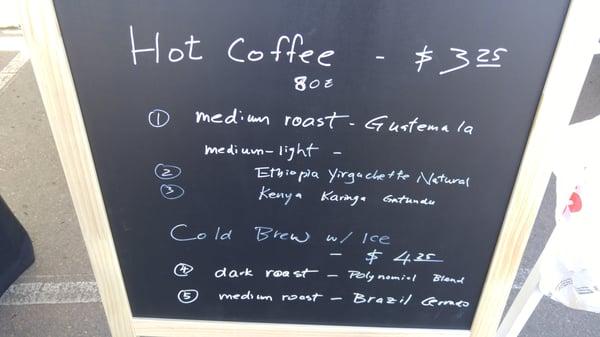 Hot Coffee - $ 3 25
8 oz
① medium roast - Guatemala
medium-light -
② Ethiopia Yirgacheffe Natural
③ Kenya Karinga Gatundu
Cold Brew w/ Ice
- $ 4.25
④ dark roast - Polynomial Blend
⑤ medium roast - Brazil Cerrado